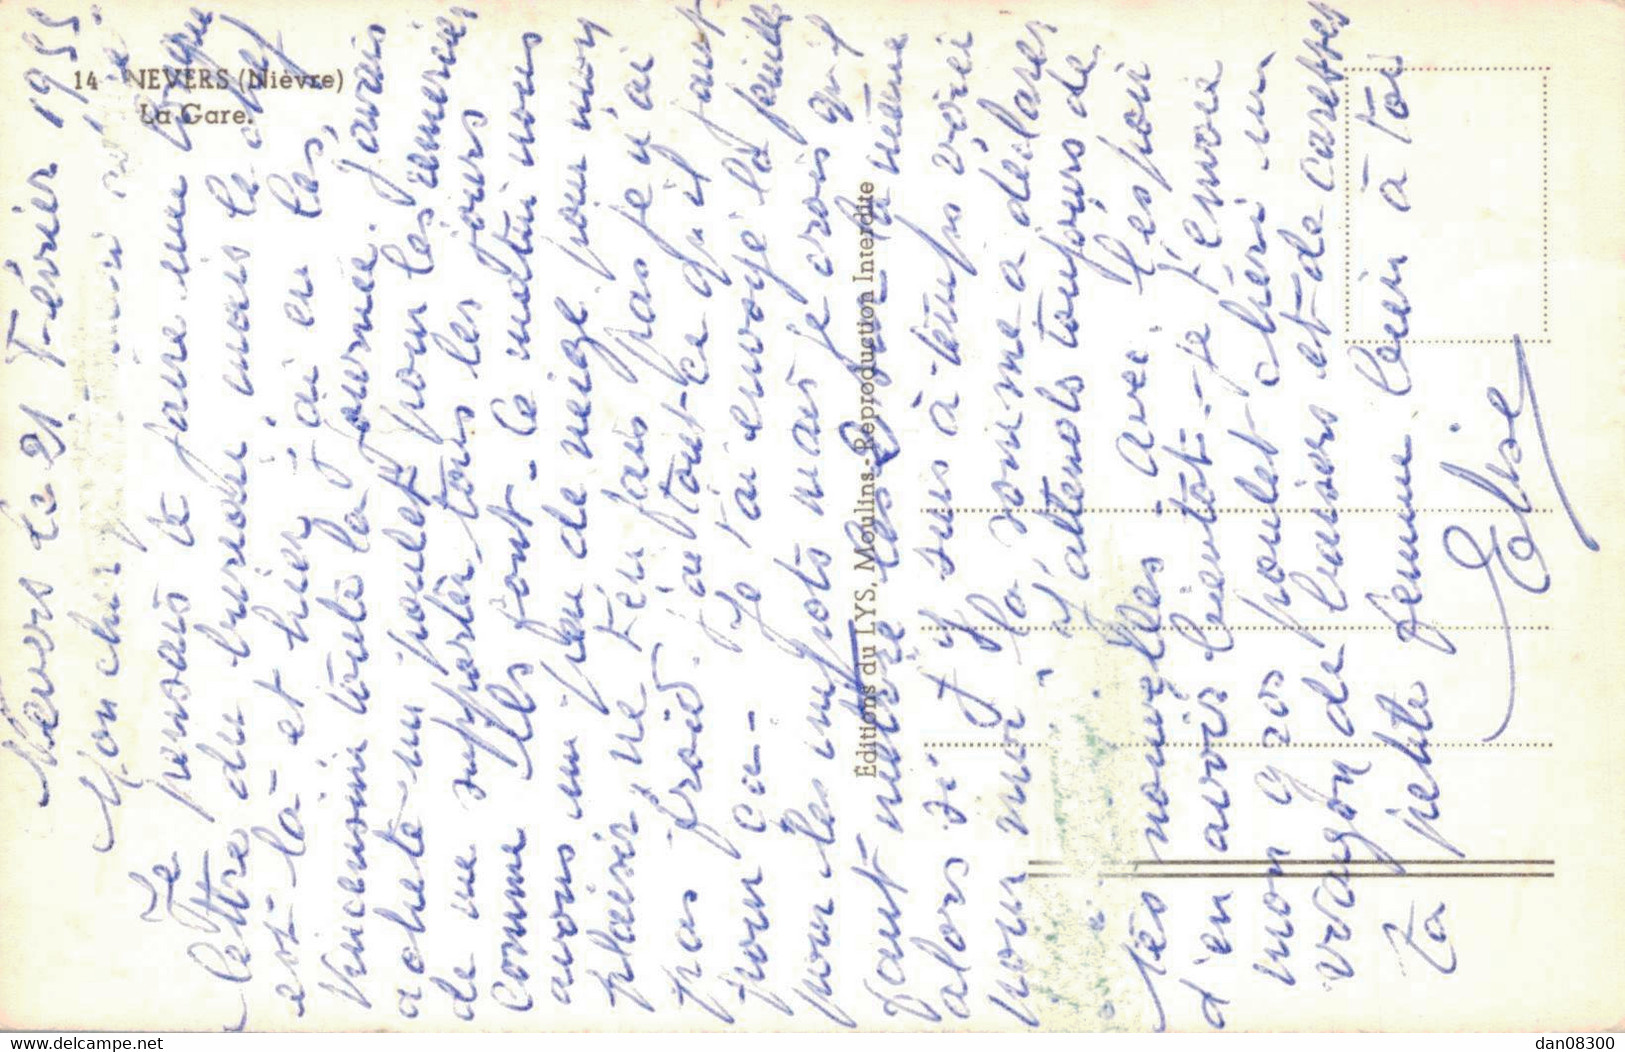 14 NEVERS (Nièvre)
La Gare.
Nevers le 21 Février 1955
Mon chéri
Je pensais te faire une longue
lettre du bureau, mais le chef
est là et hier j'ai eu les
toute la journée. J'avais
acheté un poulet pour les
de me supporter tous les jours
comme ils font. Ce matin nous
avons un peu de neige. pour mon
plaisir, ne t'en fais pas je n'ai
pas froid. j'ai tout ce qu'il faut
pour ça. Je t'ai envoyé la feuille
pour les impôts mais je crois qu'il
faut mettre les
alors si j'y suis à temps voici
pour moi la somme à déclarer
J'attends toujours de
tes nouvelles avec l'espoir
d'en avoir bientôt. je t'envoie
mon gros poulet chéri un
wagon de baisers et de caresses
Ta petite femme bien à toi
Elise
Éditions du LYS, Moulins-Reproduction Interdite
www.delcampe.net
dan08300